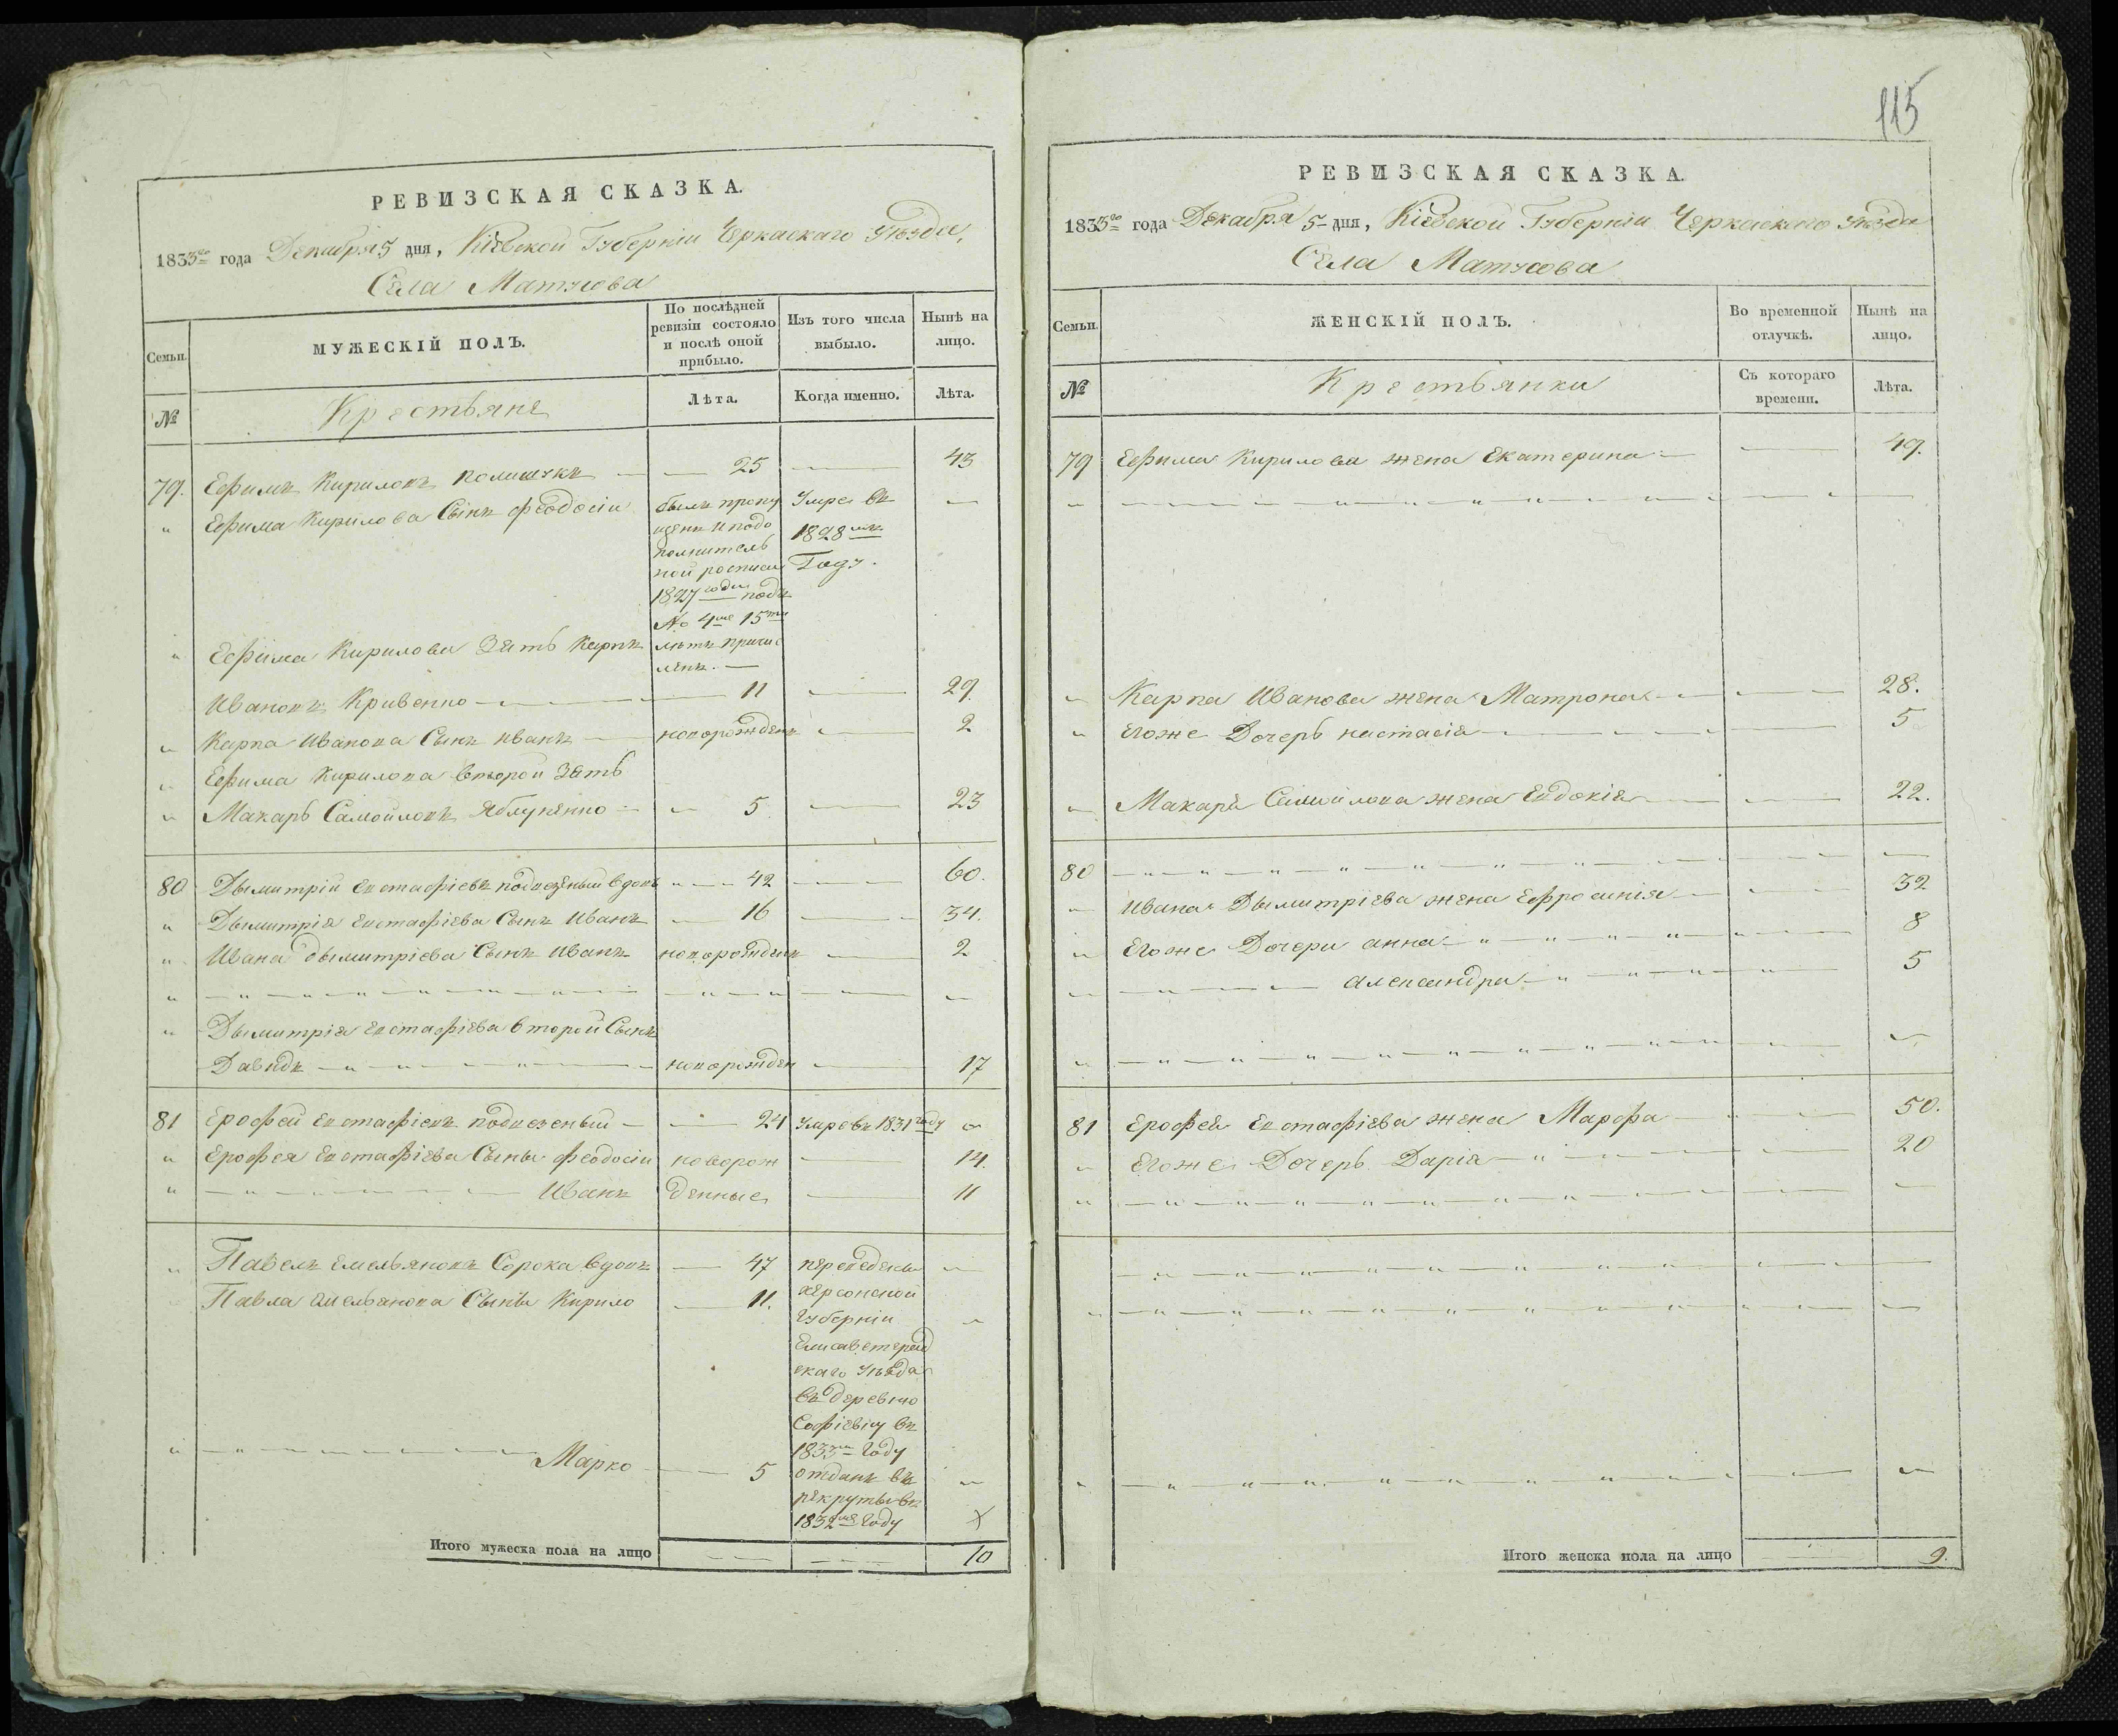 115
РЕВИЗСКАЯ СКАЗКА.
1833го года Декабря 5 дня, Кіевской Губерніи Черкаскаго Уезда,
Села Матусова
Семьи.
МУЖЕСКІЙ ПОЛЪ.
По послѣдней ревизіи состояло и послѣ оной прибыло.
Изъ того числа выбыло.
Нынѣ на лицо.
№
Крестьяне
Лѣта.
Когда именно.
Лѣта.
79. Ефимъ Кириловъ Полищукъ — 25 — 43
„ Ефима Кирилова Сынъ феодосіи
былъ пропу
щенъ и подо
полнитель
ной росписи
1827 года подъ
№ 4ме 15ти
летъ причис
ленъ. —
Умре въ
1828мъ
Году.
„ Ефима Кирилова Зять Карпъ
Ивановъ Кривенко — 11 — 29.
„ Карпа Иванова Сынъ иванъ — новорожденъ — 2
„ Ефима Кирилова второй Зять
„ Макаръ Самойловъ Яблуненко — 5 — 23
80 Дымитрій Евстафіевъ вдовъ „ — 42 — 60.
„ Дымитрія Евстафіева Сынъ Иванъ — 16 — 34.
„ Ивана дымитріева Сынъ Иванъ новорожденъ — 2
„ — „ — „ — „ — „ —
„ Дымитрія Евстафіева второй Сынъ
Давидъ — „ — „ — новорожден — 17
81 Ерофей Евстафіевъ — 24 Умре въ 1831 году „
„ Ерофея Евстафіева Сыны феодосіи новорож — 14.
„ — „ — Иванъ денные — 11
„ Павелъ Емельяновъ Сорока вдовъ — 47
Павла Емельянова Сыны Кирило — 11.
переведены
херсонской
Губерніи
Елисаветград
скаго уѣзда
въ деревню
Софіевку въ
1833м Году
„ — „ — Марко — 5
отданъ въ
рекруты въ
1832ме Году
Итого мужеска пола на лицо — — 10
РЕВИЗСКАЯ СКАЗКА.
1833го года Декабря 5 дня, Кіевской Губерніи Черкаскаго Уезда
Села Матусова
Семьи.
ЖЕНСКІЙ ПОЛЪ.
Во временной отлучкѣ.
Нынѣ на лицо.
№
Крестьянки
Съ котораго времени.
Лѣта.
79 Ефима Кирилова жена Екатерина — 49.
„ — — „ — „ — „ —
„ Карпа Иванова жена Матрона — 28.
„ Егоже Дочерь настасія — 5
„ Макара Самойлова жена Евдокія — 22.
80 — „ — „ — „ — „ —
„ Ивана Дымитріева жена Ефросинія — 32
„ Егоже Дочери анна — „ — „ — 8
„ — — александра — „ — 5
„ — „ — „ — „ — „ —
81 Ерофея Евстафіева жена Марфа — 50.
„ Егоже Дочерь Дарія — „ — 20
„ — „ — „ — „ — „ —
— „ — „ — „ — „ —
„ — „ — „ — „ — „ —
„ — „ — „ — „ — „ —
Итого женска пола на лицо — 9.